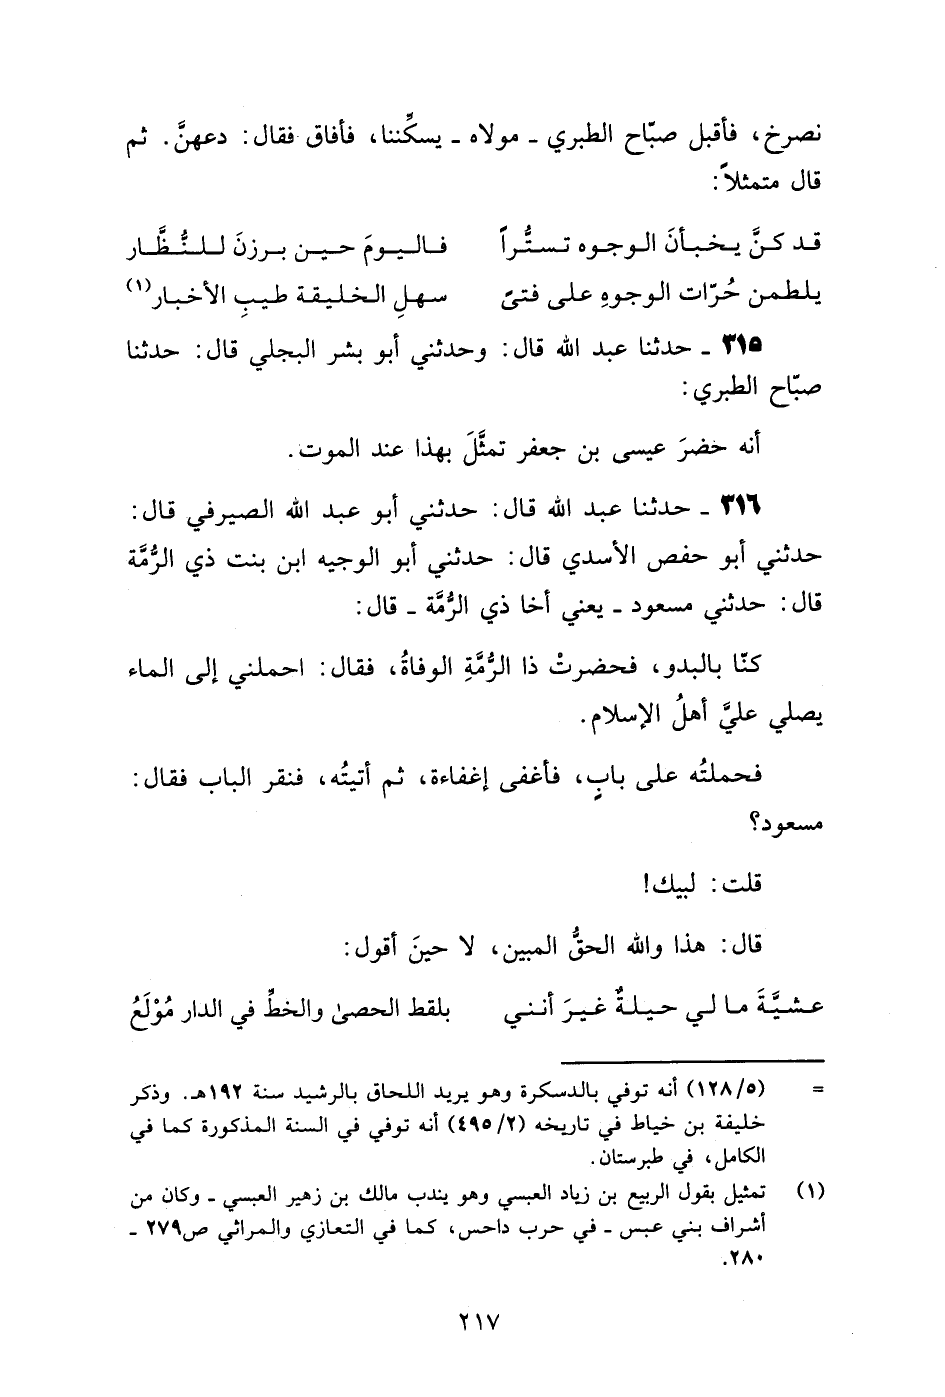 نصرخ، فأقبل صبّاح الطبري ـ مولاه ـ يسكِّننا، فأفاق فقال: دعهنَّ. ثم
قال متمثلاً:
قد كنَّ يخبأنَ الوجوه تستُّراً فاليومَ حين برزنَ للنُّظَّار
يلطمن حُرّات الوجوهِ على فتىً سهلِ الخليقة طيبِ الأخبار(١)
٣١٥ ـ حدثنا عبد الله قال: وحدثني أبو بشر البجلي قال: حدثنا
صبّاح الطبري:
أنه حضرَ عيسى بن جعفر تمثَّلَ بهذا عند الموت.
٣١٦ ـ حدثنا عبد الله قال: حدثني أبو عبد الله الصيرفي قال:
حدثني أبو حفص الأسدي قال: حدثني أبو الوجيه ابن بنت ذي الرُّمَّة
قال: حدثني مسعود ـ يعني أخا ذي الرُّمَّة ـ قال:
كنّا بالبدو، فحضرتْ ذا الرُّمَّةِ الوفاةُ، فقال: احملني إلى الماء
يصلي عليَّ أهلُ الإسلام.
فحملتُه على بابٍ، فأغفى إغفاءة، ثم أتيتُه، فنقر الباب فقال:
مسعود؟
قلت: لبيك!
قال: هذا والله الحقُّ المبين، لا حينَ أقول:
عشيَّةَ ما لي حيلةٌ غيرَ أنني بلقط الحصىٰ والخطِّ في الدار مُوْلَعُ
= (١٢٨/٥) أنه توفي بالدسكرة وهو يريد اللحاق بالرشيد سنة ١٩٢هـ. وذكر
خليفة بن خياط في تاريخه (٤٩٥/٢) أنه توفي في السنة المذكورة كما في
الكامل، في طبرستان.
(١) تمثيل بقول الربيع بن زياد العبسي وهو يندب مالك بن زهير العبسي ـ وكان من
أشراف بني عبس ـ في حرب داحس، كما في التعازي والمراثي ص٢٧٩ ـ
٢٨٠.
٢١٧